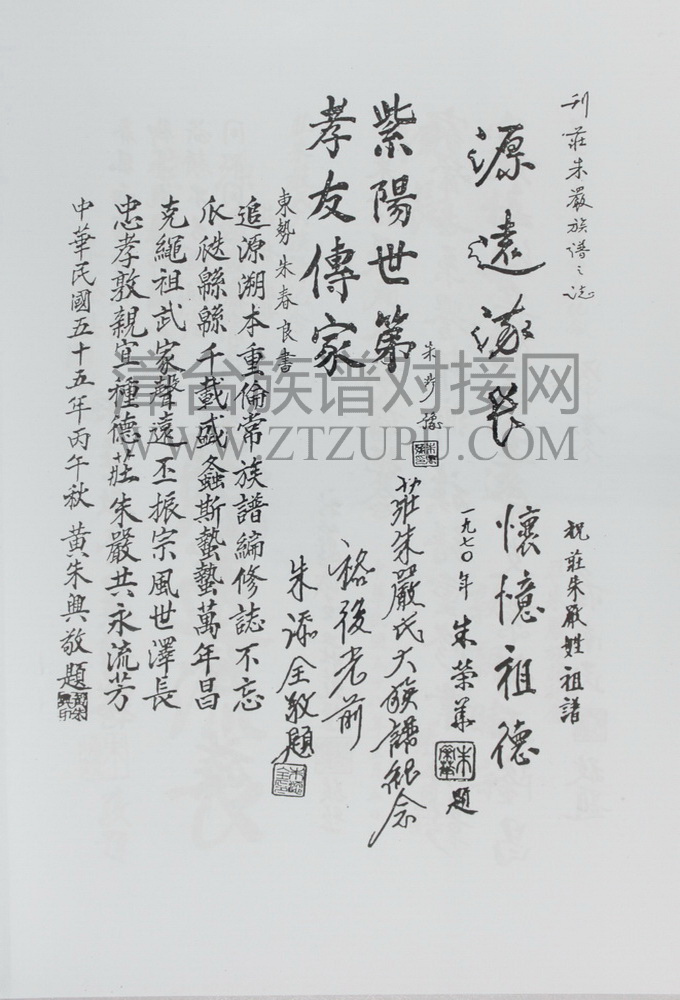 刊莊朱嚴族谱之誌
源遠流长
朱 豫
紫陽世第
孝友傳家
東勢 朱春良書
祝莊朱嚴姓祖譜
懷憶祖德
一九七〇年 朱榮華 題
莊朱嚴氏大族譜紀念
裕後光前
朱添全敬題
追源溯本重倫常族譜編修誌不忘
瓜瓞緜緜千載盛螽斯蟄蟄萬年昌
克繩祖武家聲遠丕振宗風世澤長
忠孝敦親宜種德莊朱嚴共永流芳
中華民國五十五年丙午秋 黃朱興敬題
漳台族谱对接网
WWW.ZTZUPU.COM